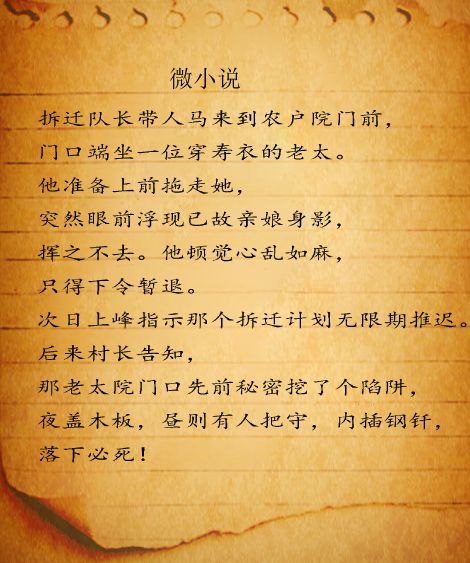 微小说
拆迁队长带人马来到农户院门前，
门口端坐一位穿寿衣的老太。
他准备上前拖走她，
突然眼前浮现已故亲娘身影，
挥之不去。他顿觉心乱如麻，
只得下令暂退。
次日上峰指示那个拆迁计划无限期推迟。
后来村长告知，
那老太院门口先前秘密挖了个陷阱，
夜盖木板，昼则有人把守，内插钢钎，
落下必死！